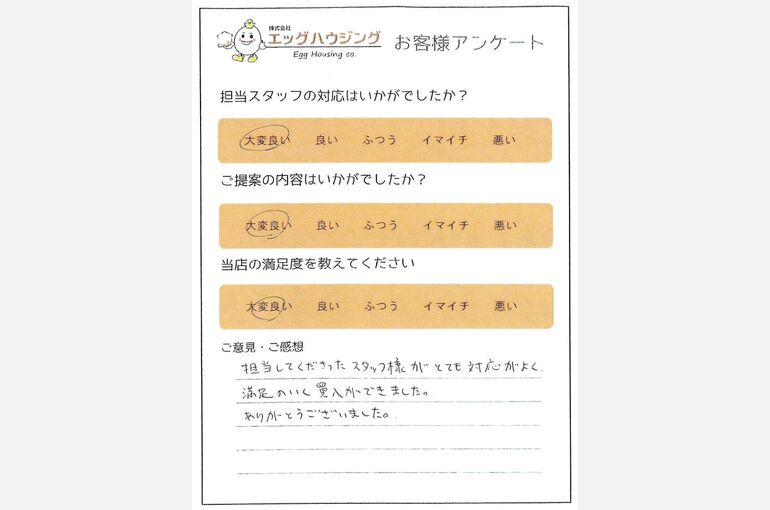 株式会社
エッグハウジング
Egg Housing co.
お客様アンケート
担当スタッフの対応はいかがでしたか？
大変良い 良い ふつう イマイチ 悪い
ご提案の内容はいかがでしたか？
大変良い 良い ふつう イマイチ 悪い
当店の満足度を教えてください
大変良い 良い ふつう イマイチ 悪い
ご意見・ご感想
担当してくださったスタッフ様がとても対応がよく
満足のいく買入ができました。
ありがとうございました。